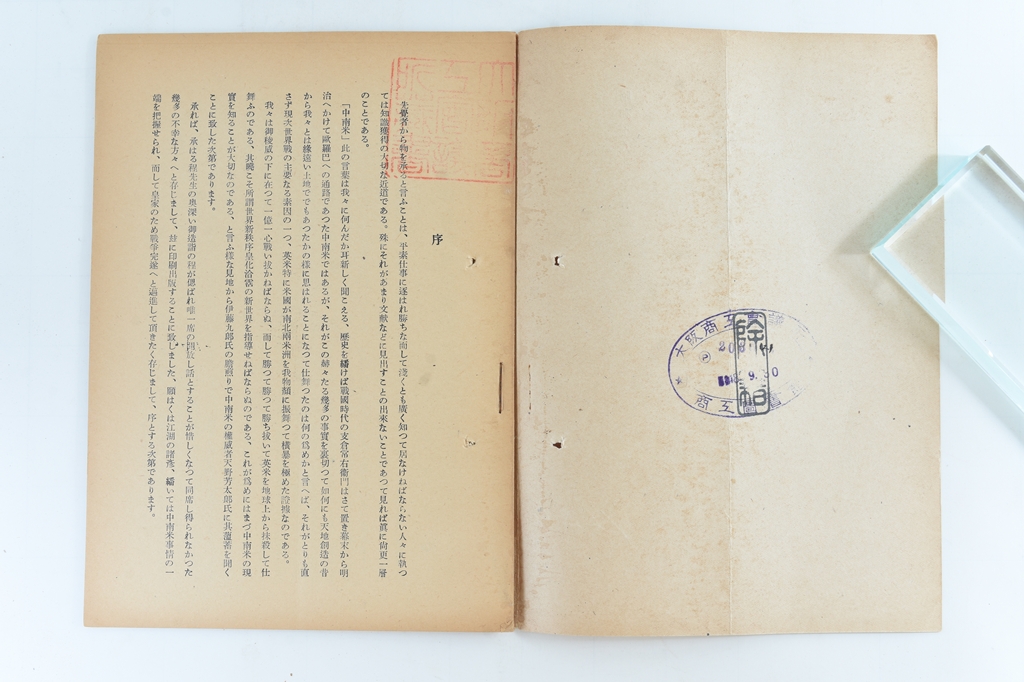 序
先覺者から物を承ると言ふことは、平素仕事に逐はれ勝ちな而して淺くとも廣く知つて居なければならない人々に執つ
ては知識獲得の大切な近道である。殊にそれがあまり文献などに見出すことの出來ないことであつて見れば眞に尙更一層
のことである。
「中南米」此の言葉は我々に何んだか耳新しく聞こえる、歷史を繙けば戰國時代の支倉常右衞門はさて置き幕末から明
治へかけて歐羅巴への通路であつた中南米ではあるが、それがこの赫々たる幾多の事實を裏切つて如何にも天地創造の昔
から我々とは緣遠い土地ででもあつたかの樣に思はれることになつて仕舞つたのは何の爲めかと言へば、それがとりも直
さず現次世界戰の主要なる素因の一つ、英米特に米國が南北兩米洲を我物顏に振舞つて橫暴を極めた證據なのである。
我々は御稜威の下に在つて一億一心戰い拔かねばならぬ、而して勝つて勝つて勝ち拔いて英米を地球上から抹殺して仕
舞ふのである、其曉こそ所謂世界新秩序皇化洽雲の新世界を指導せねばならぬのである、これが爲めにはまづ中南米の現
實を知ることが大切なのである、と言ふ樣な見地から伊藤九郞氏の膽煎りで中南米の權威者天野芳太郞氏に其薀蓄を聞く
ことに致した次第であります。
承れば、承はる程先生の奧深い御造詣の程が偲ばれ唯一席の話とすることが惜しくなつて同席し得られなかつた
幾多の不幸な方々へと存じまして、玆に印刷出版することに致しました、願はくは江湖の諸彥、繙いては中南米事情の一
端を把握せられ、而して皇家のため戰爭完遂へと邁進して頂きたく存じまして、序とする次第であります。
大阪商工
9.30
商工